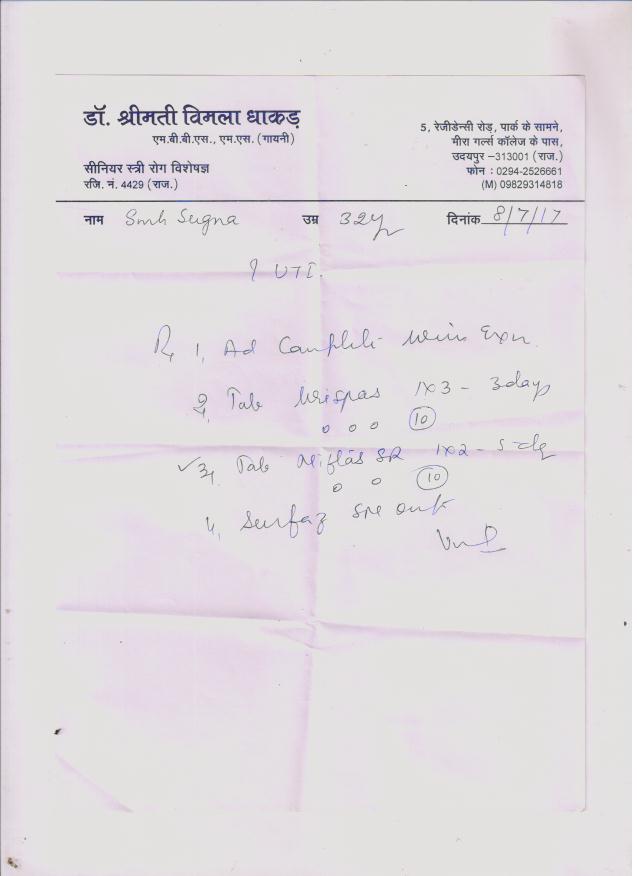 डॉ. श्रीमती विमला धाकड़
एम.बी.बी.एस., एम.एस. (गायनी)
सीनियर स्त्री रोग विशेषज्ञ
रजि. नं. 4429 (राज.)
5, रेजीडेन्सी रोड़, पार्क के सामने,
मीरा गर्ल्स कॉलेज के पास,
उदयपुर –313001 (राज.)
फोन : 0294-2526661
(M) 09829314818
नाम Smt Sugna उम्र 32y दिनांक 8/7/17
? UTI.
Rx 1, Ad Complete Urine Exm
2, Tab Urispas 1x3 - 3days
o o o 10
✓3, Tab Niftas SR 1x2 - 5 d
o o 10
4, Surfaz